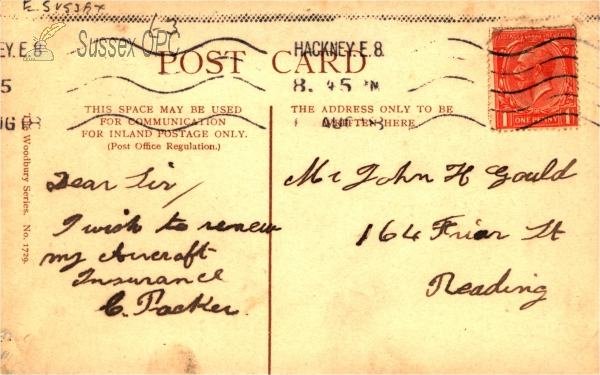 E SUSSEX
63
Sussex OPC
POST CARD
HACKNEY. E. 8.
8. 45 PM
AUG
NEY. E. 8.
5
UG
ONE PENNY
THIS SPACE MAY BE USED
FOR COMMUNICATION
FOR INLAND POSTAGE ONLY.
(Post Office Regulation.)
THE ADDRESS ONLY TO BE
WRITTEN HERE
The Woodbury Series. No. 1729.
Dear Sir/
I wish to renew
my Aircraft
Insurance
C. Packer.
Mr John H Gould
164 Friar St
Reading